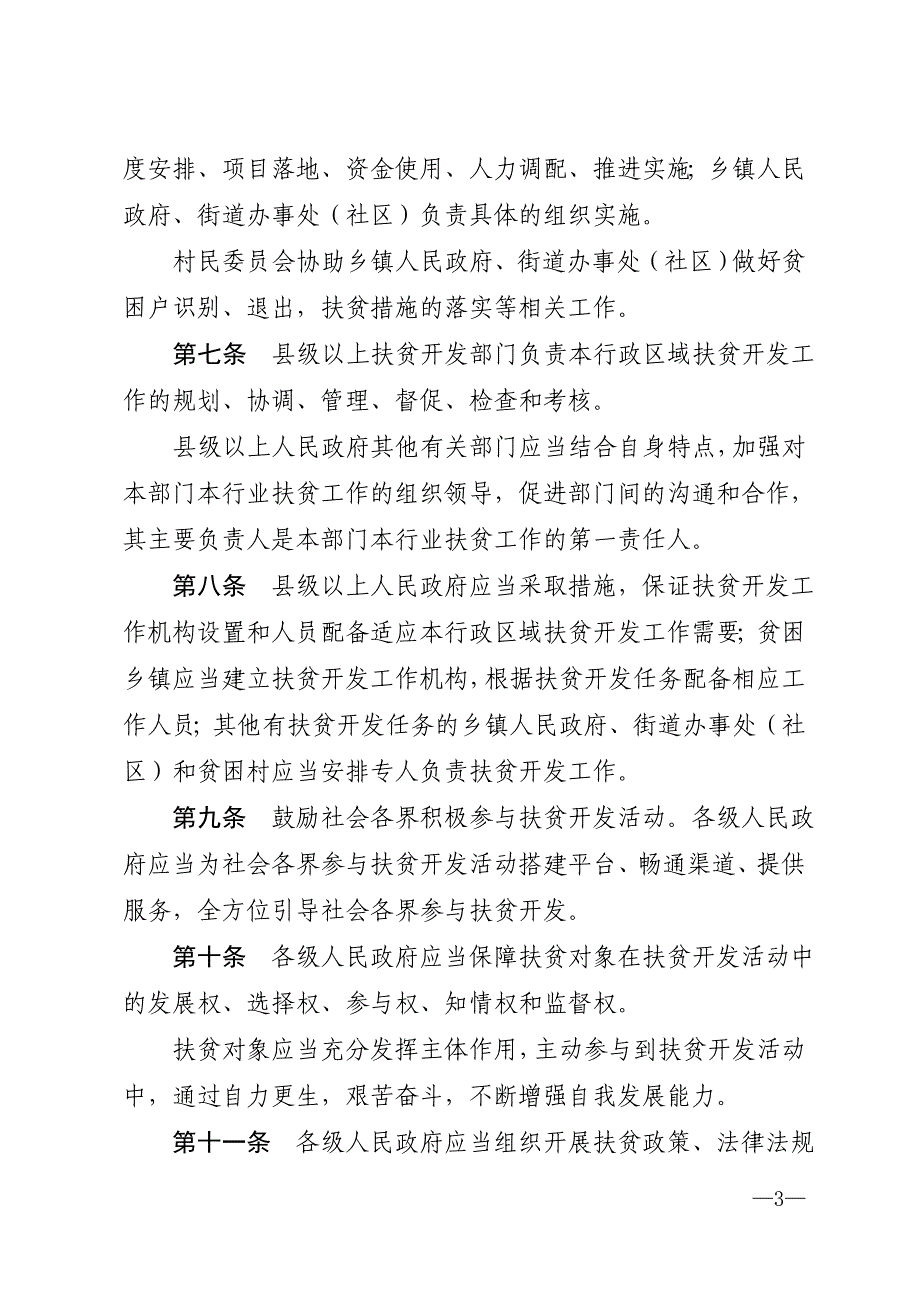 度安排、项目落地、资金使用、人力调配、推进实施；乡镇人民
政府、街道办事处（社区）负责具体的组织实施。
村民委员会协助乡镇人民政府、街道办事处（社区）做好贫
困户识别、退出，扶贫措施的落实等相关工作。
第七条　县级以上扶贫开发部门负责本行政区域扶贫开发工
作的规划、协调、管理、督促、检查和考核。
县级以上人民政府其他有关部门应当结合自身特点，加强对
本部门本行业扶贫工作的组织领导，促进部门间的沟通和合作，
其主要负责人是本部门本行业扶贫工作的第一责任人。
第八条　县级以上人民政府应当采取措施，保证扶贫开发工
作机构设置和人员配备适应本行政区域扶贫开发工作需要；贫困
乡镇应当建立扶贫开发工作机构，根据扶贫开发任务配备相应工
作人员；其他有扶贫开发任务的乡镇人民政府、街道办事处（社
区）和贫困村应当安排专人负责扶贫开发工作。
第九条　鼓励社会各界积极参与扶贫开发活动。各级人民政
府应当为社会各界参与扶贫开发活动搭建平台、畅通渠道、提供
服务，全方位引导社会各界参与扶贫开发。
第十条　各级人民政府应当保障扶贫对象在扶贫开发活动中
的发展权、选择权、参与权、知情权和监督权。
扶贫对象应当充分发挥主体作用，主动参与到扶贫开发活动
中，通过自力更生，艰苦奋斗，不断增强自我发展能力。
第十一条　各级人民政府应当组织开展扶贫政策、法律法规
—3—